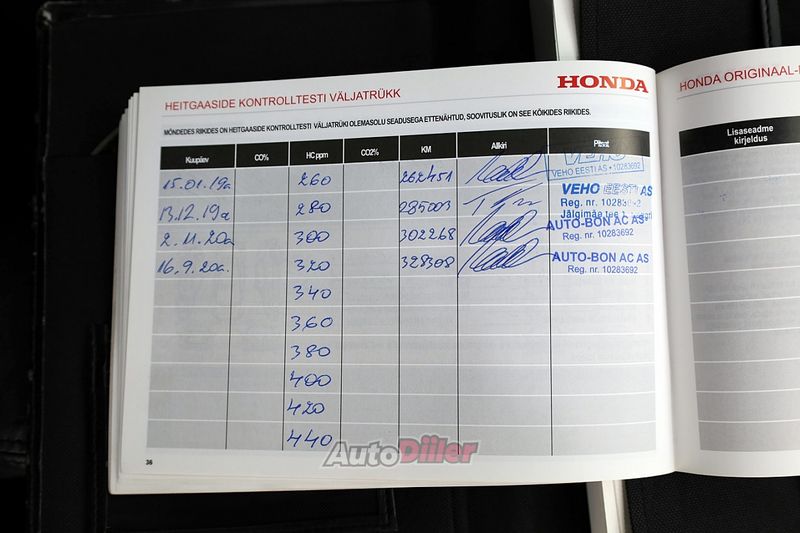 HEITGAASIDE KONTROLLTESTI VÄLJATRÜKK HONDA
MÕNDEDES RIIKIDES ON HEITGAASIDE KONTROLLTESTI VÄLJATRÜKI OLEMASOLU SEADUSEGA ETTENÄHTUD, SOOVITUSLIK ON SEE KÕIKIDES RIIKIDES.
Kuupäev CO% HC ppm CO2% KM Allkiri Pitsat
15.01.19a 260 262451 VEHO
VEHO EESTI AS • 10283692
13.12.19a 280 285003 VEHO EESTI AS
Reg. nr.
Jälgimäe tee 1,
2.11.20a 300 302268 AUTO-BON AC AS
Reg. nr. 10283692
16.9.20a. 320 328308 AUTO-BON AC AS
Reg. nr. 10283692
340
360
380
400
420
440
36
AutoDiiler
HONDA ORIGINAAL-
Lisaseadme
kirjeldus